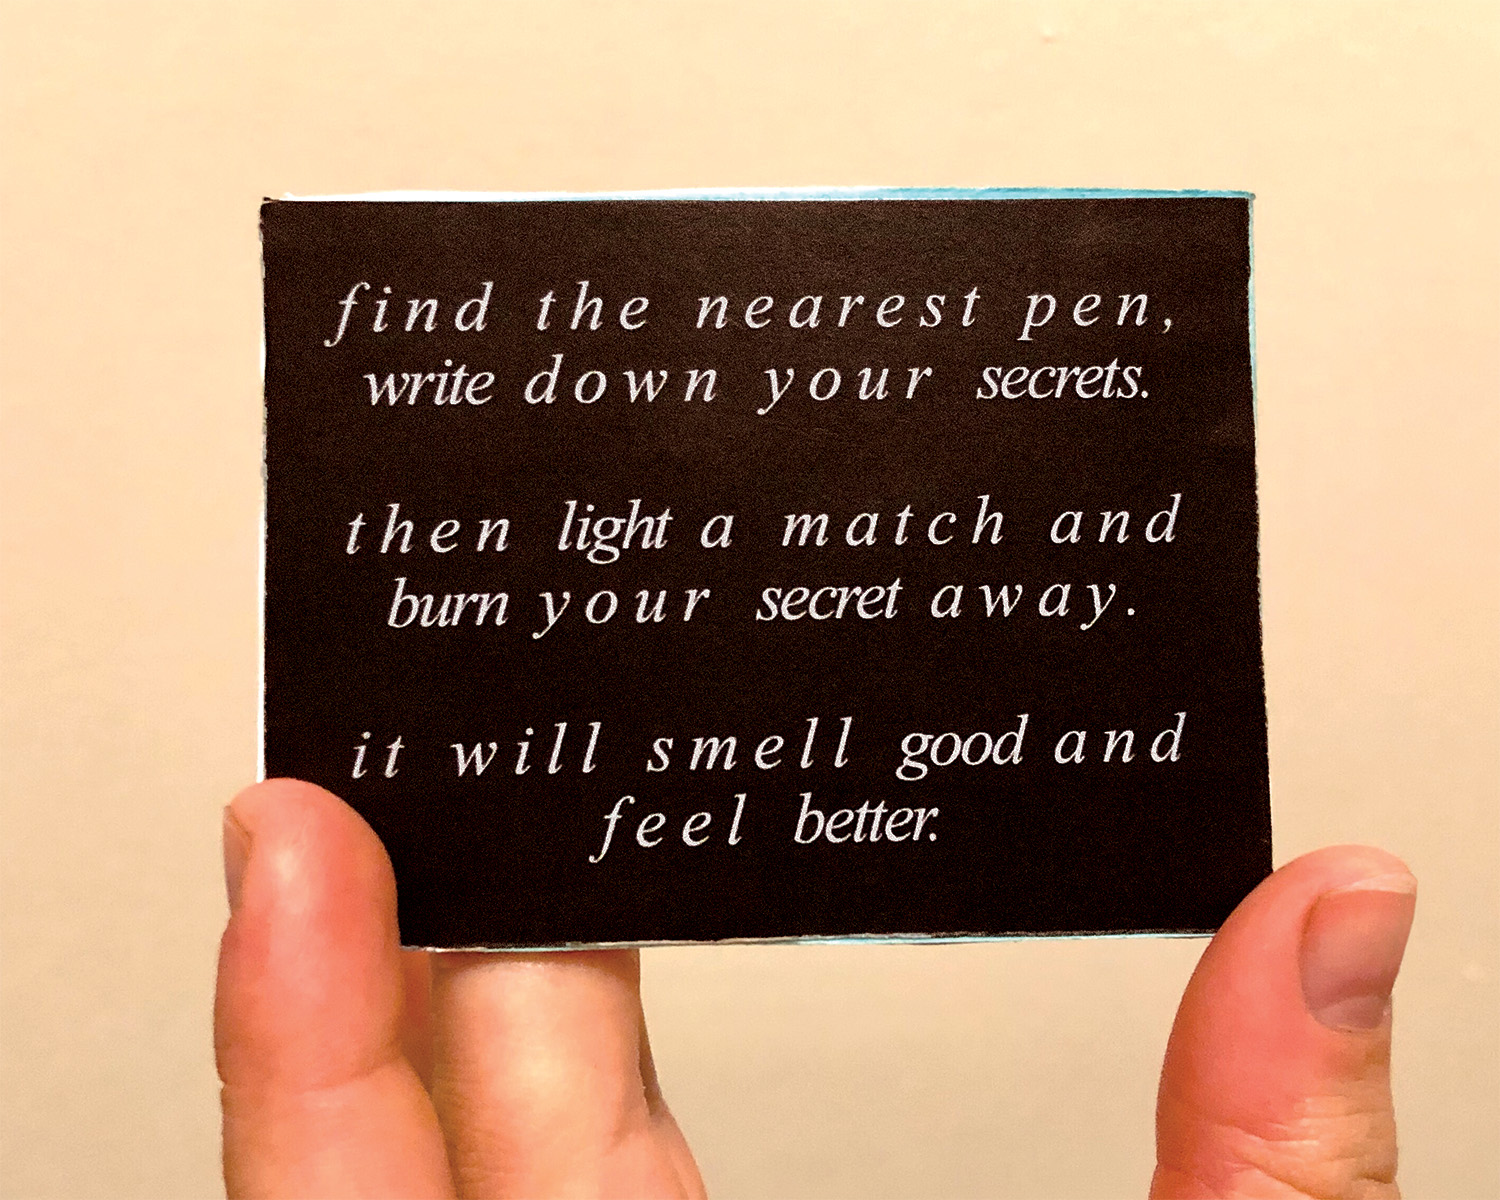 find the nearest pen,
write down your secrets.
then light a match and
burn your secret away.
it will smell good and
feel better.